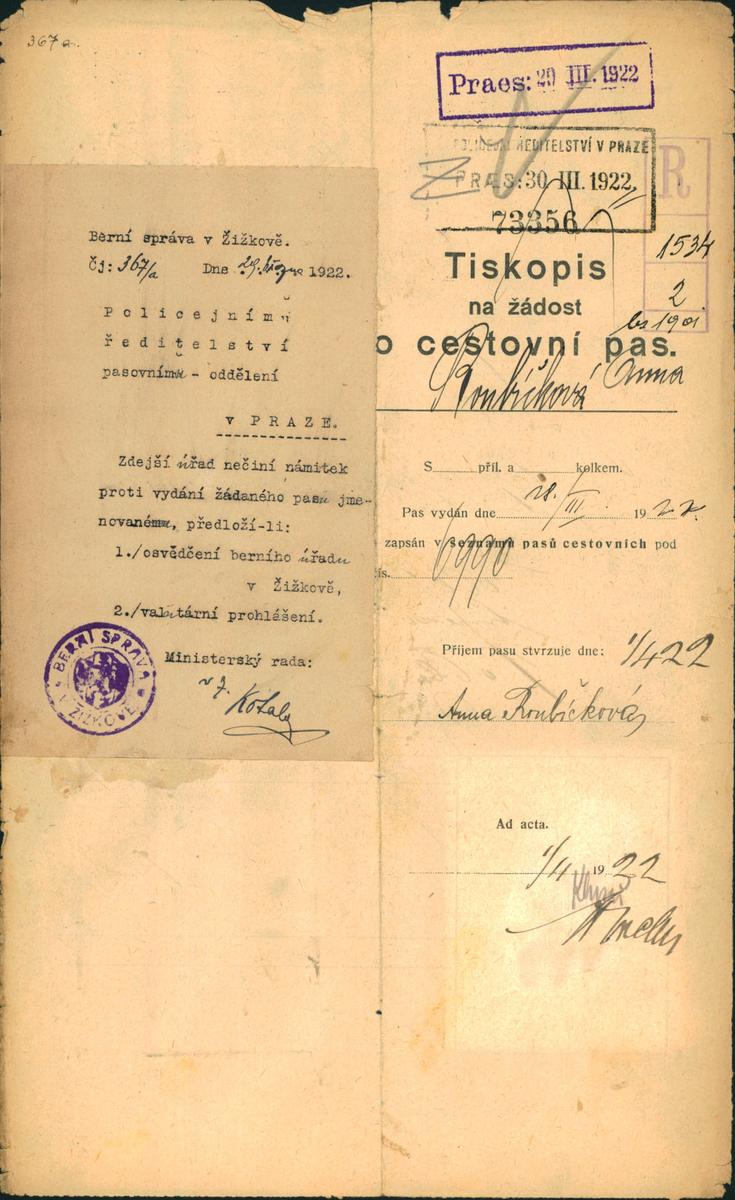 367 a.
Berní správa v Žižkově.
Čj: 367/a Dne 29. března 1922.
Policejnímu
ředitelství
pasovnímu - oddělení
v PRAZE.
Zdejší úřad nečiní námitek
proti vydání žádaného pasu jme-
novanému, předloží-li:
1./osvědčení berního úřadu
v Žižkově,
2./valutární prohlášení.
Ministerský rada:
BERNÍ SPRÁVA
V ŽIŽKOVĚ
Praes: 29 III. 1922
POLICEJNÍ ŘEDITELSTVÍ V PRAZE
PRAES: 30 III. 1922
73356
R
1534
2
1901
Tiskopis
na žádost
o cestovní pas.
Roubíčková Anna
S příl. a kolkem.
Pas vydán dne 28./III. 1922.
zapsán v seznamu pasů cestovních pod
čís. 6990
Příjem pasu stvrzuje dne: 1/4 22
Anna Roubíčková
Ad acta.
1/4 1922